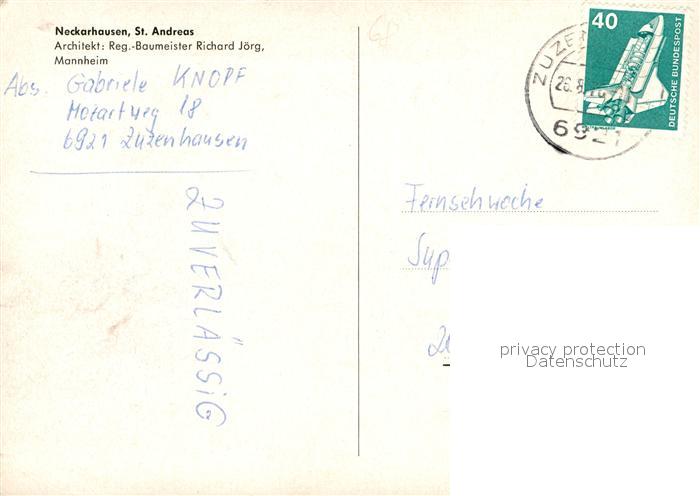 Neckarhausen, St. Andreas
Architekt: Reg.-Baumeister Richard Jörg,
Mannheim
Abs. Gabriele KNOPF
Mozartweg 18
6921 Zuzenhausen
ZUVERLÄSSIG
40
DEUTSCHE BUNDESPOST
6921
Fernsehwoche
privacy protection
Datenschutz